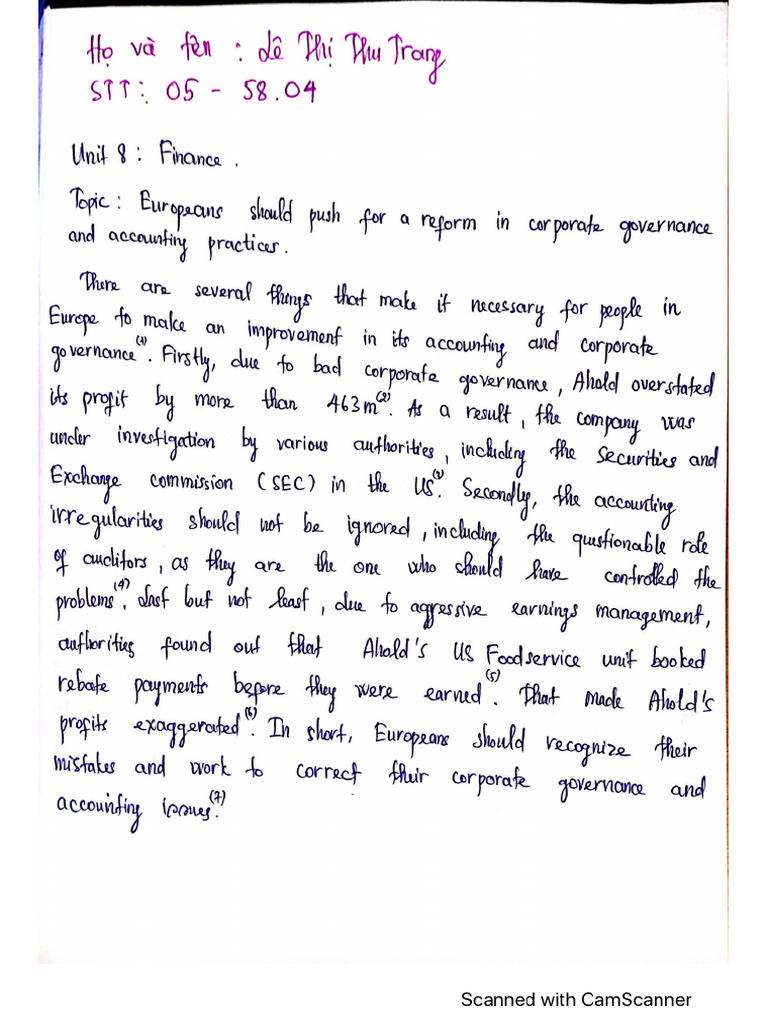 Họ và tên : Lê Thị Thu Trang
STT: 05 - 58.04
Unit 8 : Finance .
Topic : Europeans should push for a reform in corporate governance
and accounting practices.
There are several things that make it necessary for people in
Europe to make an improvement in its accounting and corporate
governance(1). Firstly, due to bad corporate governance, Ahold overstated
its profit by more than 463m(2). As a result, the company was
under investigation by various authorities, including the Securities and
Exchange commission (SEC) in the US(3). Secondly, the accounting
irregularities should not be ignored, including the questionable role
of auditors, as they are the one who should have controlled the
problems(4). Last but not least, due to aggressive earnings management,
authorities found out that Ahold's US Foodservice unit booked
rebate payments before they were earned(5). That made Ahold's
profits exaggerated(6). In short, Europeans should recognize their
mistakes and work to correct their corporate governance and
accounting issues(7).
Scanned with CamScanner